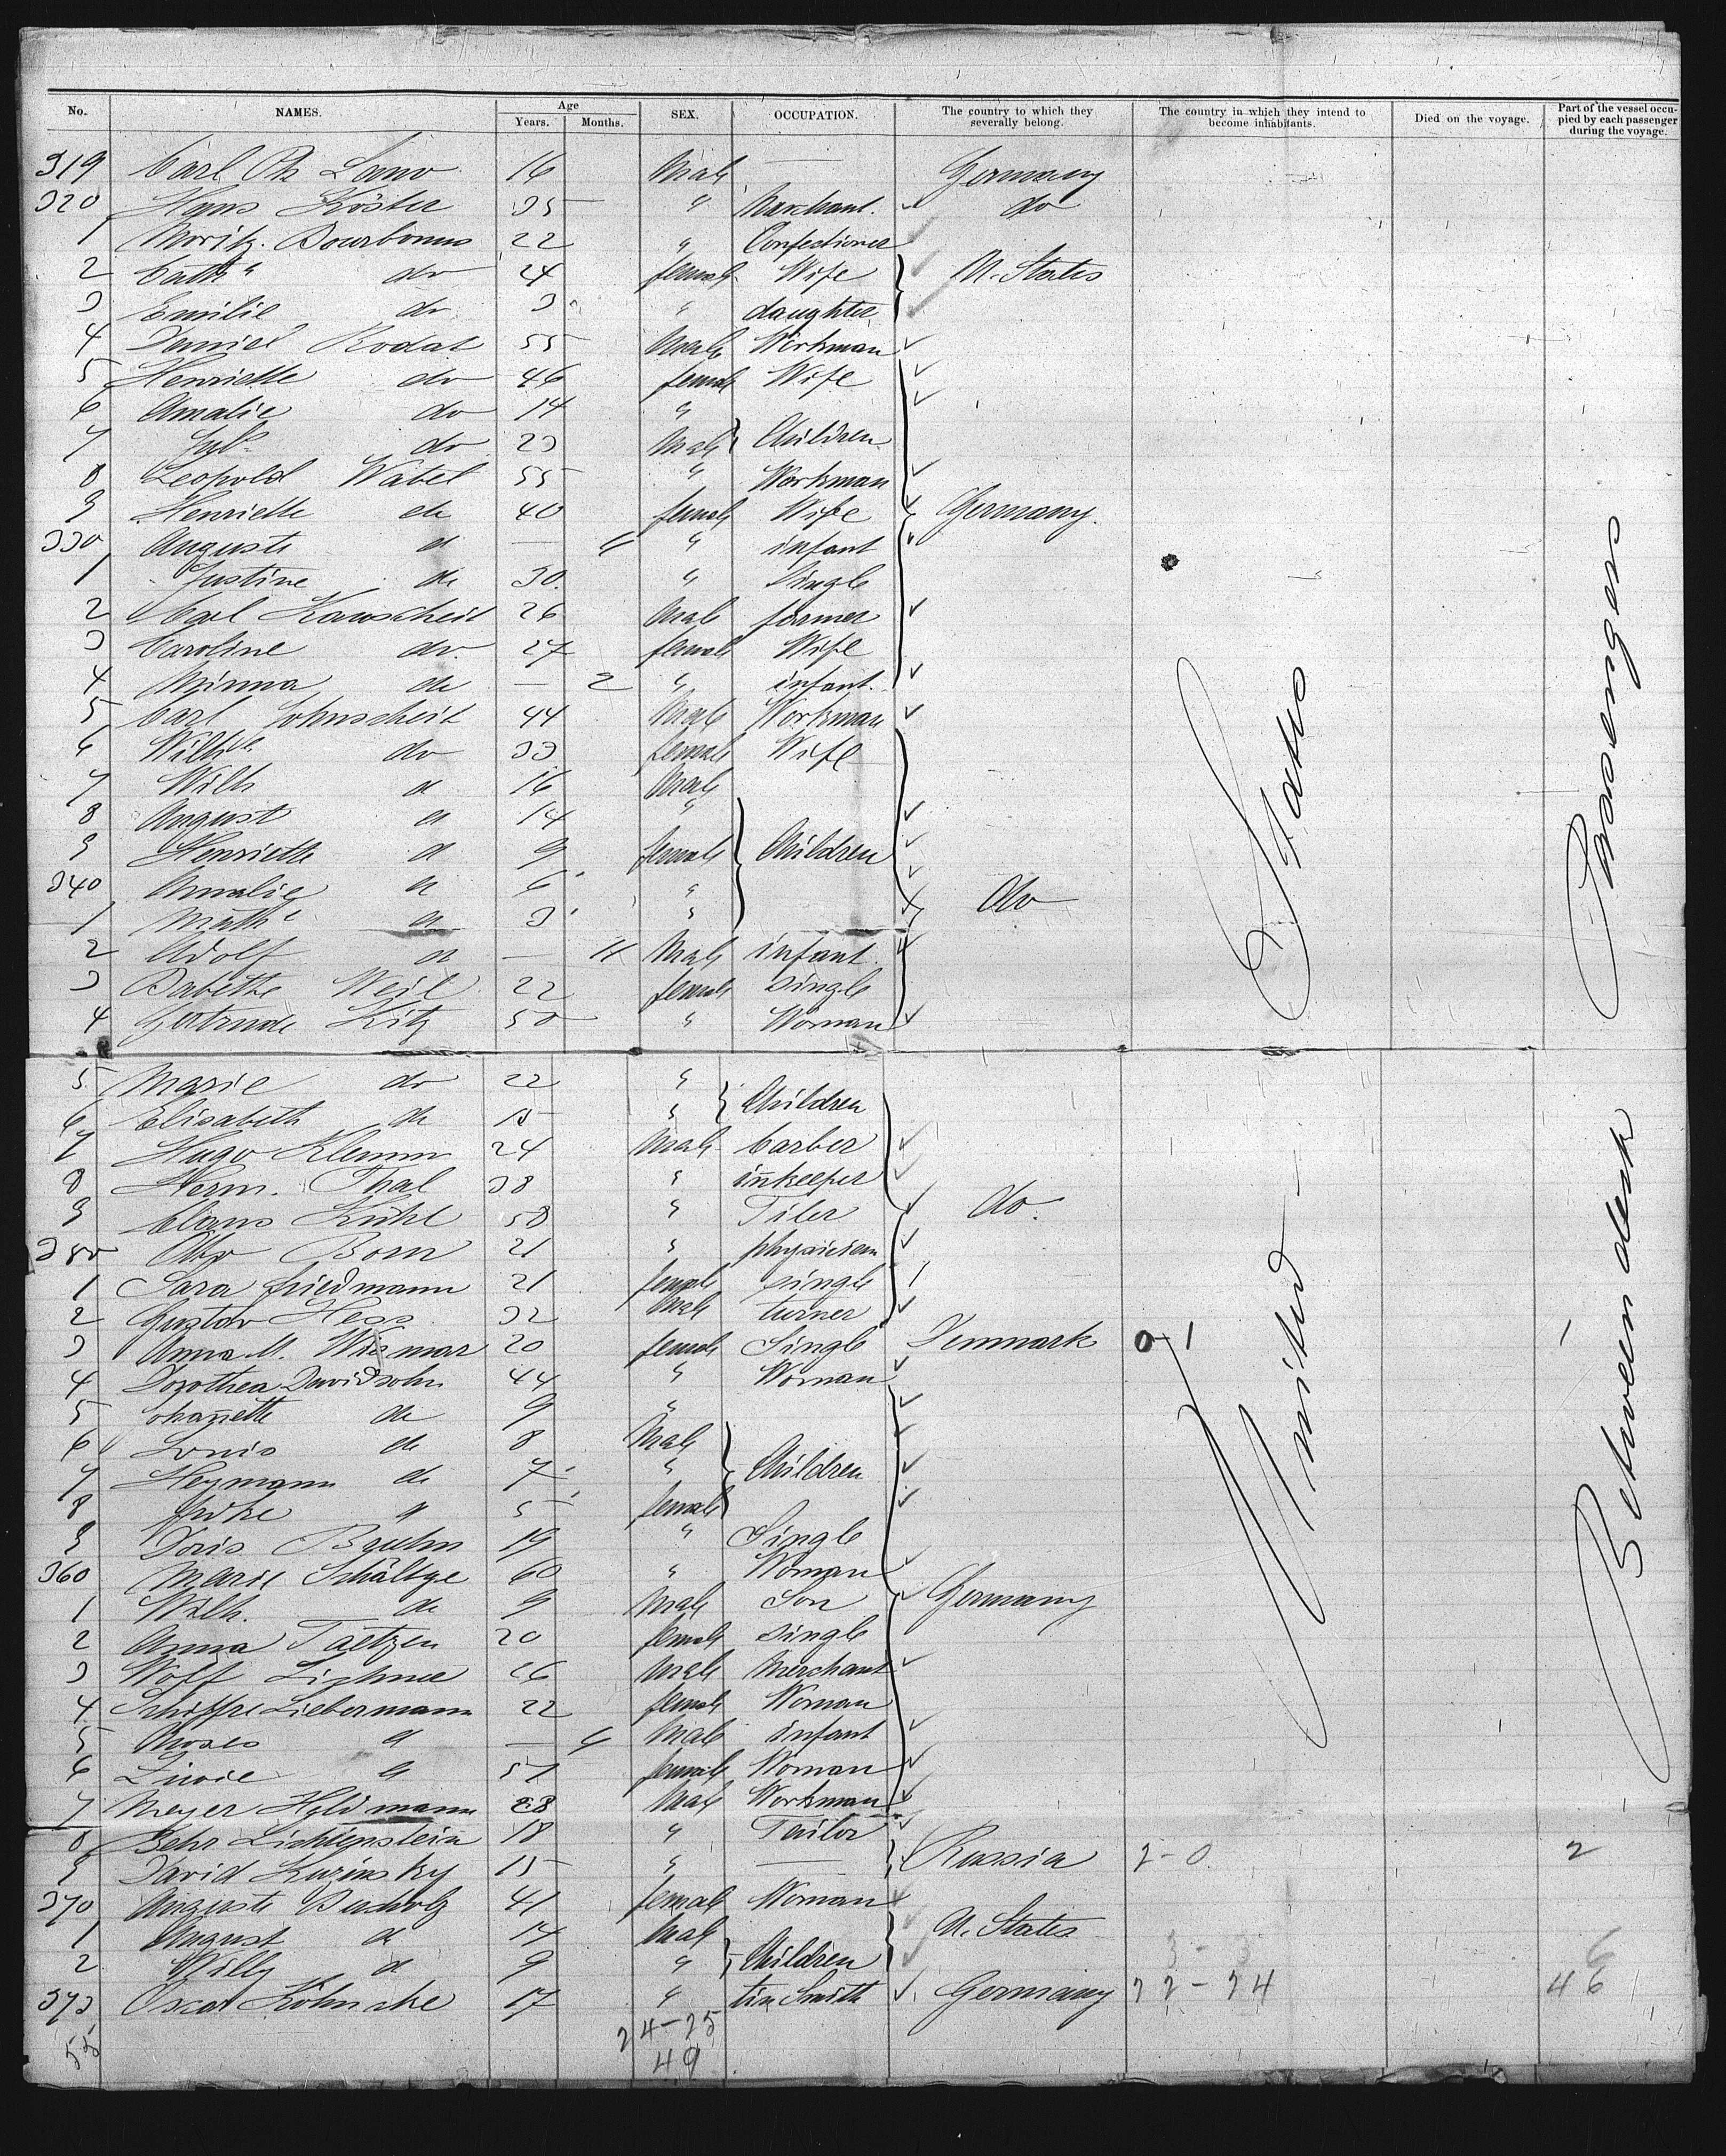 No. NAMES. Age Years. Months. SEX. OCCUPATION. The country to which they severally belong. The country in which they intend to become inhabitants. Died on the voyage. Part of the vessel occupied by each passenger during the voyage.
319 Carl 16 Male — Germany
320 Hans Köster 35 " Merchant. do
1 Moritz Bourbonus 22 " Confectioner
2 Cathe do 24 female Wife U. States
3 Emilie do 3 " daughter
4 Daniel Rodat 55 Male Workman
5 Henriette do 46 female Wife
6 Amalie do 14 "
7 do 23 Male Children
8 Leopold Wabel 55 " Workman
9 Henriette do 40 female Wife Germany.
330 Auguste d — " infant
1 Justine do 30 " Single
2 Carl Kawscheit 26 Male farmer
3 Caroline do 27 female Wife
4 Minna do — 2 " infant.
5 Carl Johnscheit 44 Male Workman
6 Wilhe do 33 female Wife
7 Wilh d 16 Male
8 August d 14 "
9 Henriette d 9 female Children
340 Amalie d 6 "
1 Mathe d 3 " do
2 Adolf d — 11 Male infant.
3 Babette Weil 22 female Single
4 Gertrude Kitz 50 " Woman
5 Marie do 22 "
6 Elisabeth do 15 " Children
7 Hugo Klemm 24 Male barber
8 Herm. Thal 38 " innkeeper
9 Claus Kühl 58 " Tiler do.
350 Born 21 " physician
1 Sara Friedmann 21 female single
2 Gustav Hess 32 Male turner
3 Anna M. Wismar 20 female Single Denmark 0-1 1
4 Dorothea Davidsohn 44 " Woman
5 Johanette do 9 "
6 Louis do 8 Male
7 Heymann do 7 " Children
8 d 5 female
9 Doris Bruhn 19 " Single
360 Marie Schältge 60 " Woman
1 Wilh. do 9 Male Son Germany
2 Anna Taetzen 20 female Single
3 Wolf 26 Male Merchant
4 Liebermann 22 female Woman
5 Moses d — Male infant
6 d 57 female Woman
7 Meyer Male Workman
8 Behr Lichtenstein 18 " Tailor
9 David Kuzinsky 15 " — Russia 2-0 2
370 Auguste Bucholz 41 female Woman
1 August d 14 Male U. States
2 Willy d 9 " Children 3-3 6
373 Oscar Köhncke 17 " tin Smith Germany 22-24 46
24-25
55 49
United States
Between deck Passengers